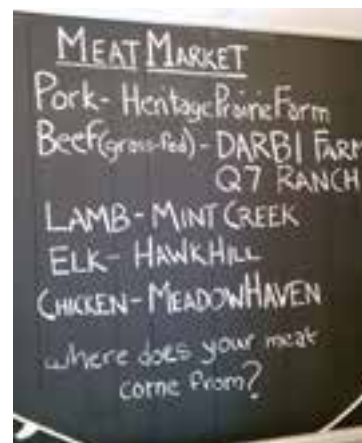 MEAT MARKET
Pork- Heritage Prairie Farm
Beef (grass-fed) - DARBI FARM
Q7 RANCH
LAMB - MINT CREEK
ELK - HAWK HILL
CHICKEN - MEADOWHAVEN
where does your meat
come from?